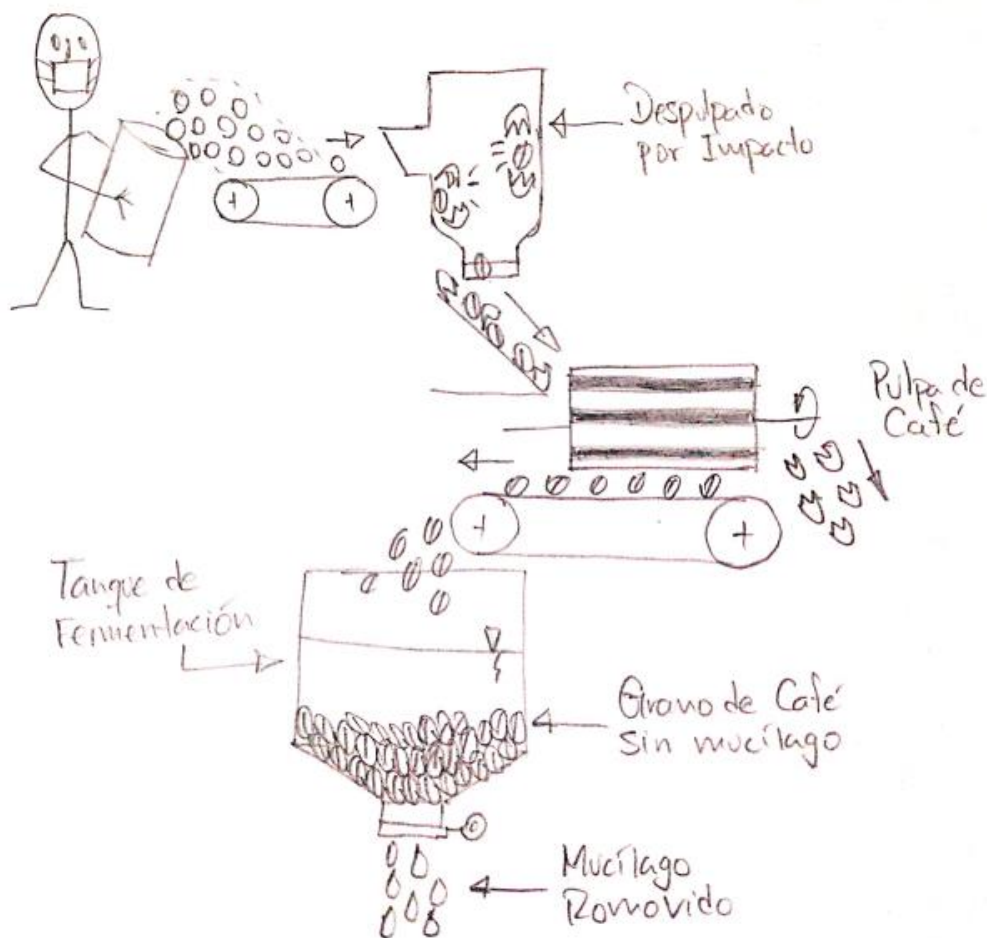 Despulpado
por Impacto
Pulpa de
Café
Tanque de
Fermentación
Grano de Café
sin mucílago
Mucílago
Removido